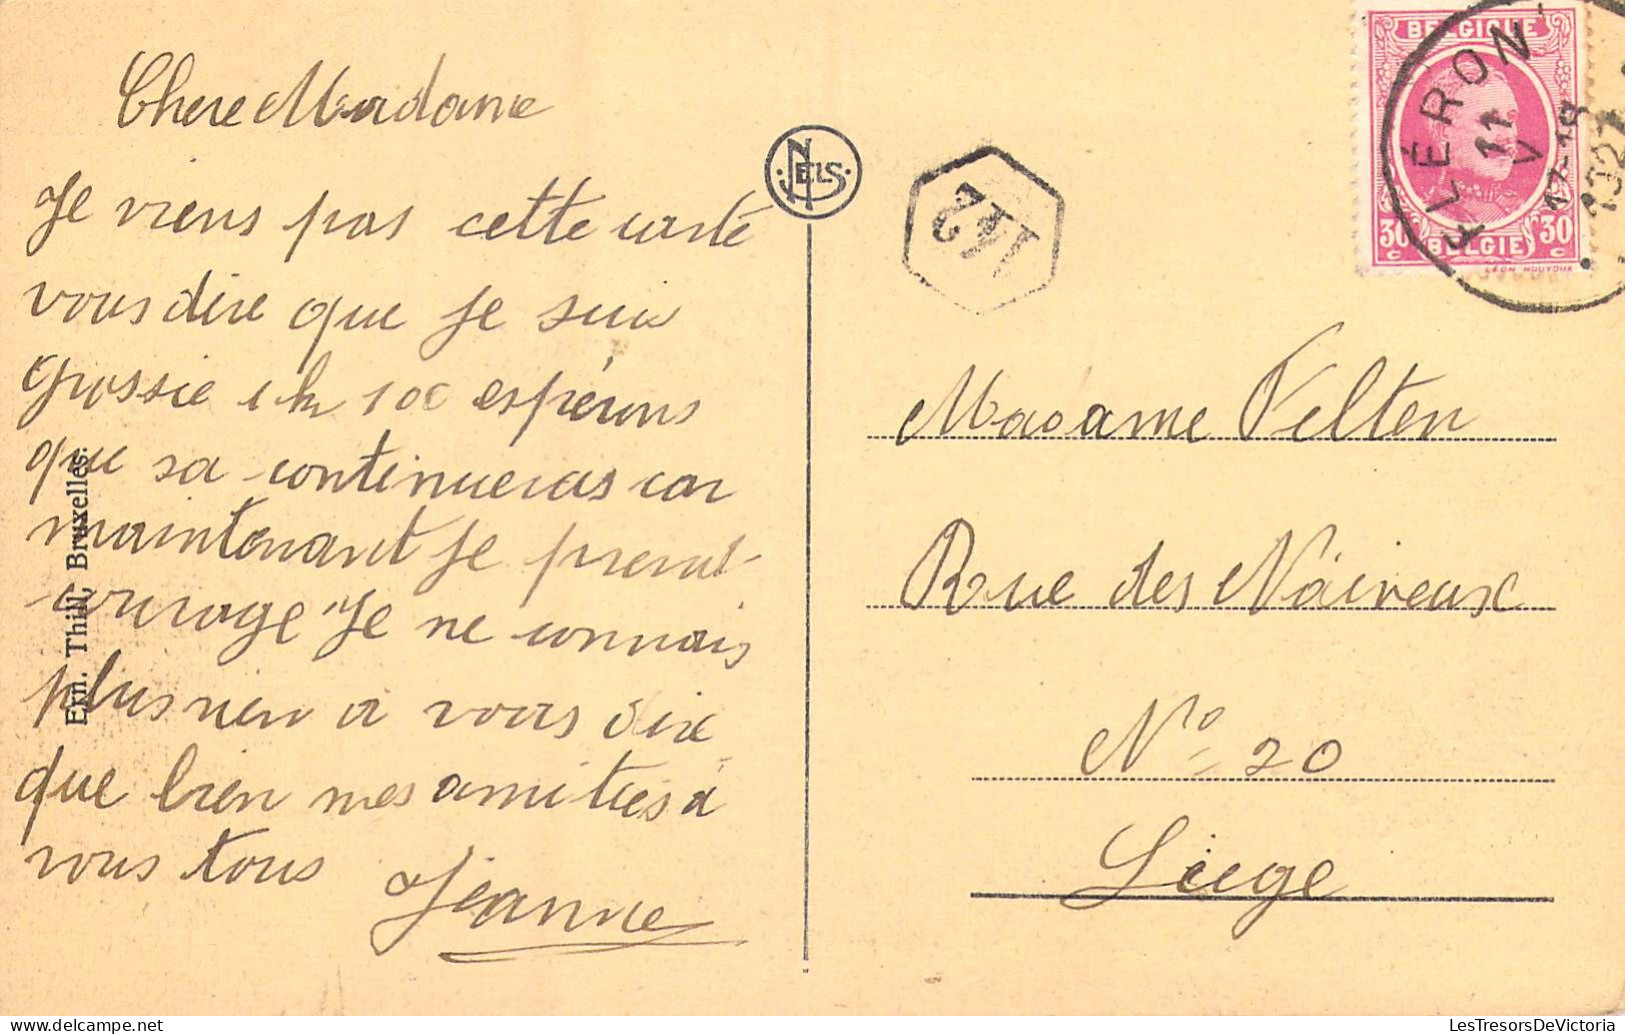 Chere Madame
Je viens pas cette carte
vous dire que je suis
grossie 1 k 100 espérons
que sa continueras car
maintenant je prend
courage Je ne connais
plus rien a vous dire
que bien mes amitiés à
vous tous
Jeanne
Ern. Thill, Bruxelles.
NELS
142
BELGIQUE
30 c BELGIE 30 c
LÉON HOUYOUX
FLÉRON
11
V
17-18
1927
Madame Felten
Rue des Naiveux
No 20
Liege
LesTresorsDeVictoria